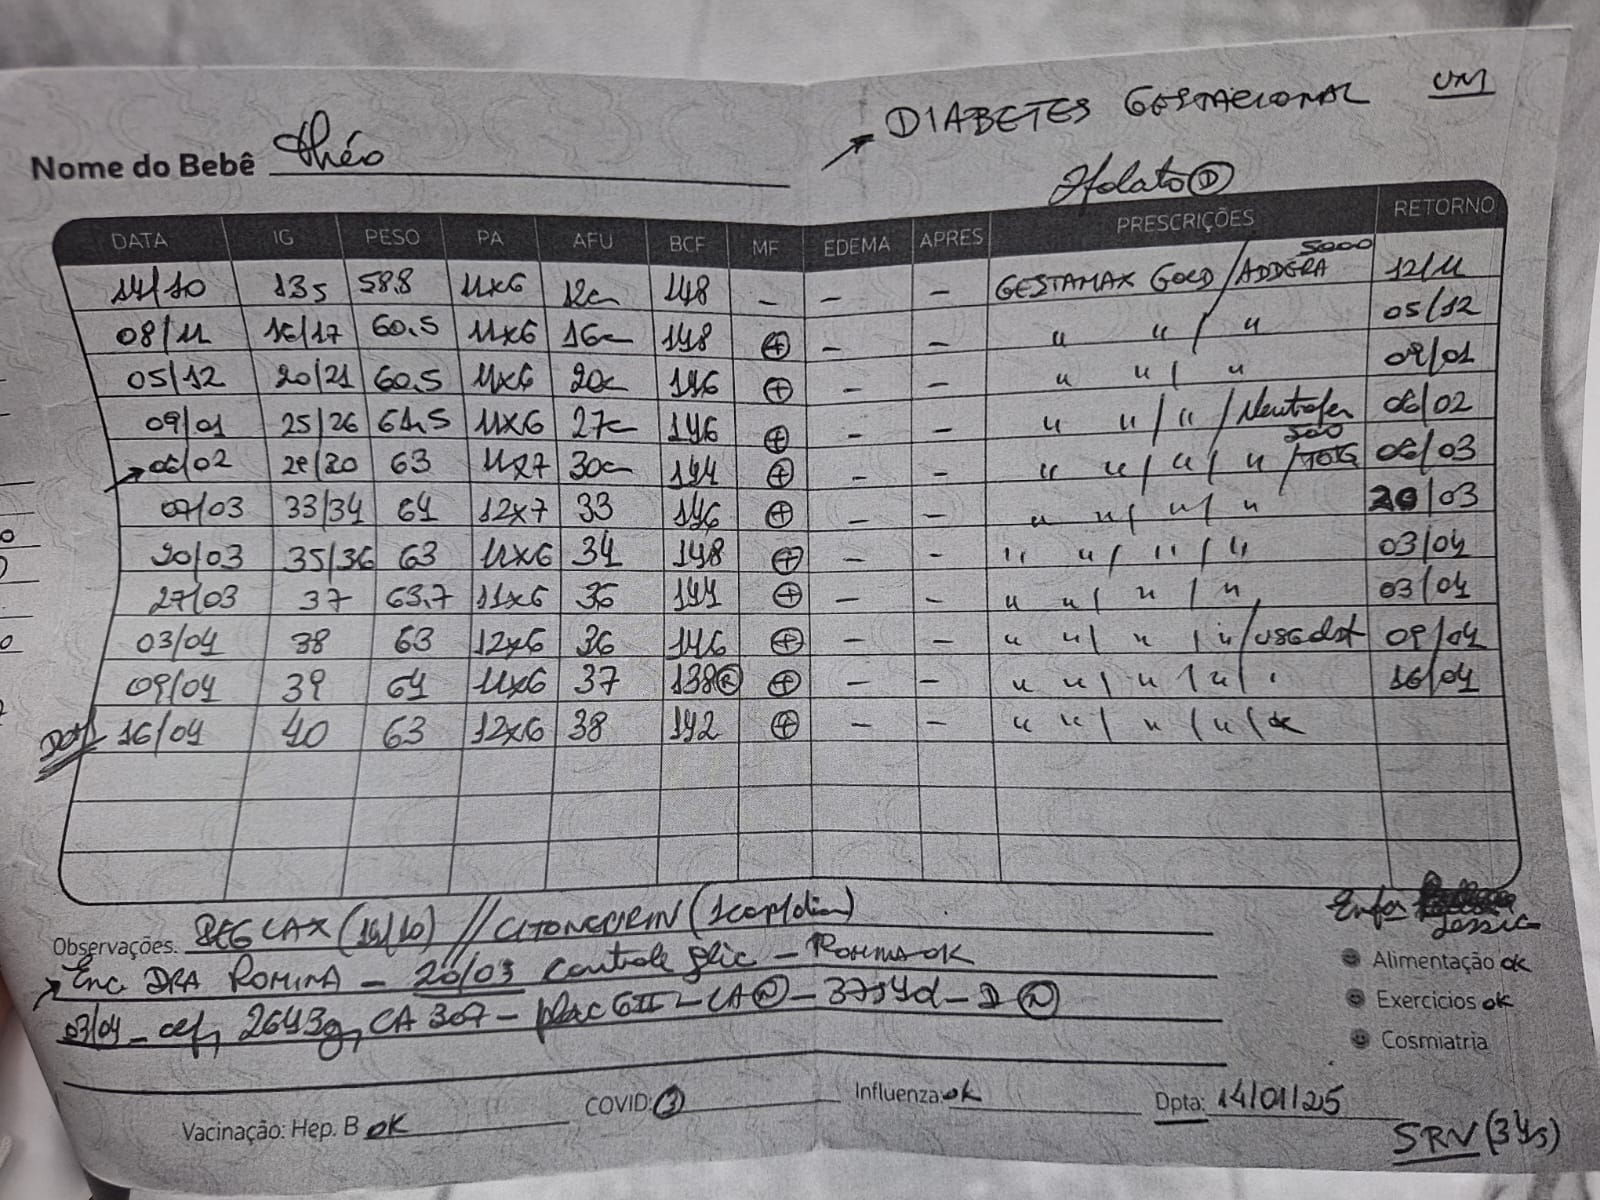 DIABETES GESTACIONAL
Nome do Bebê Théo
DATA IG PESO PA AFU BCF MF EDEMA APRES PRESCRIÇÕES RETORNO
14/10 13s 58.8 11x6 12c 148 - - - GESTAMAX GOLD / ADDERA 5000 12/11
08/11 16/17 60.5 11x6 16c 148 + - - " " / " 05/12
05/12 20/21 60.5 11x6 20c 146 + - - " " / " 09/01
09/01 25/26 61.5 11x6 27c 146 + - - " " / " / Neutrofer 500 06/02
06/02 29/30 63 11x7 30c 144 + - - " " / " / " / TOTG 06/03
07/03 33/34 64 12x7 33 146 + - - " " / " / " 20/03
20/03 35/36 63 11x6 34 148 + - - " " / " / " 03/04
27/03 37 63.7 11x6 36 144 + - - " " / " / " 03/04
03/04 38 63 12x6 36 146 + - - " " / " / " / USG obst 09/04
09/04 39 64 11x6 37 138 + - - " " / " / " / 16/04
16/04 40 63 12x6 38 142 + - - " " / " / " /
Observações. PEGLAX (14/10) // CITONEURIN (1comp/dia)
Enc DRA ROMINA - 20/03 controle glic - ROMINA OK
03/04 - cef, 2643g, CA 307 - plac GII - LA N - 37s4d - D N
Enfa Jessica
Alimentação ok
Exercícios ok
Cosmiatria
Vacinação: Hep. B ok COVID: 3 Influenza: ok Dpta: 14/01/25
SRV (34s)